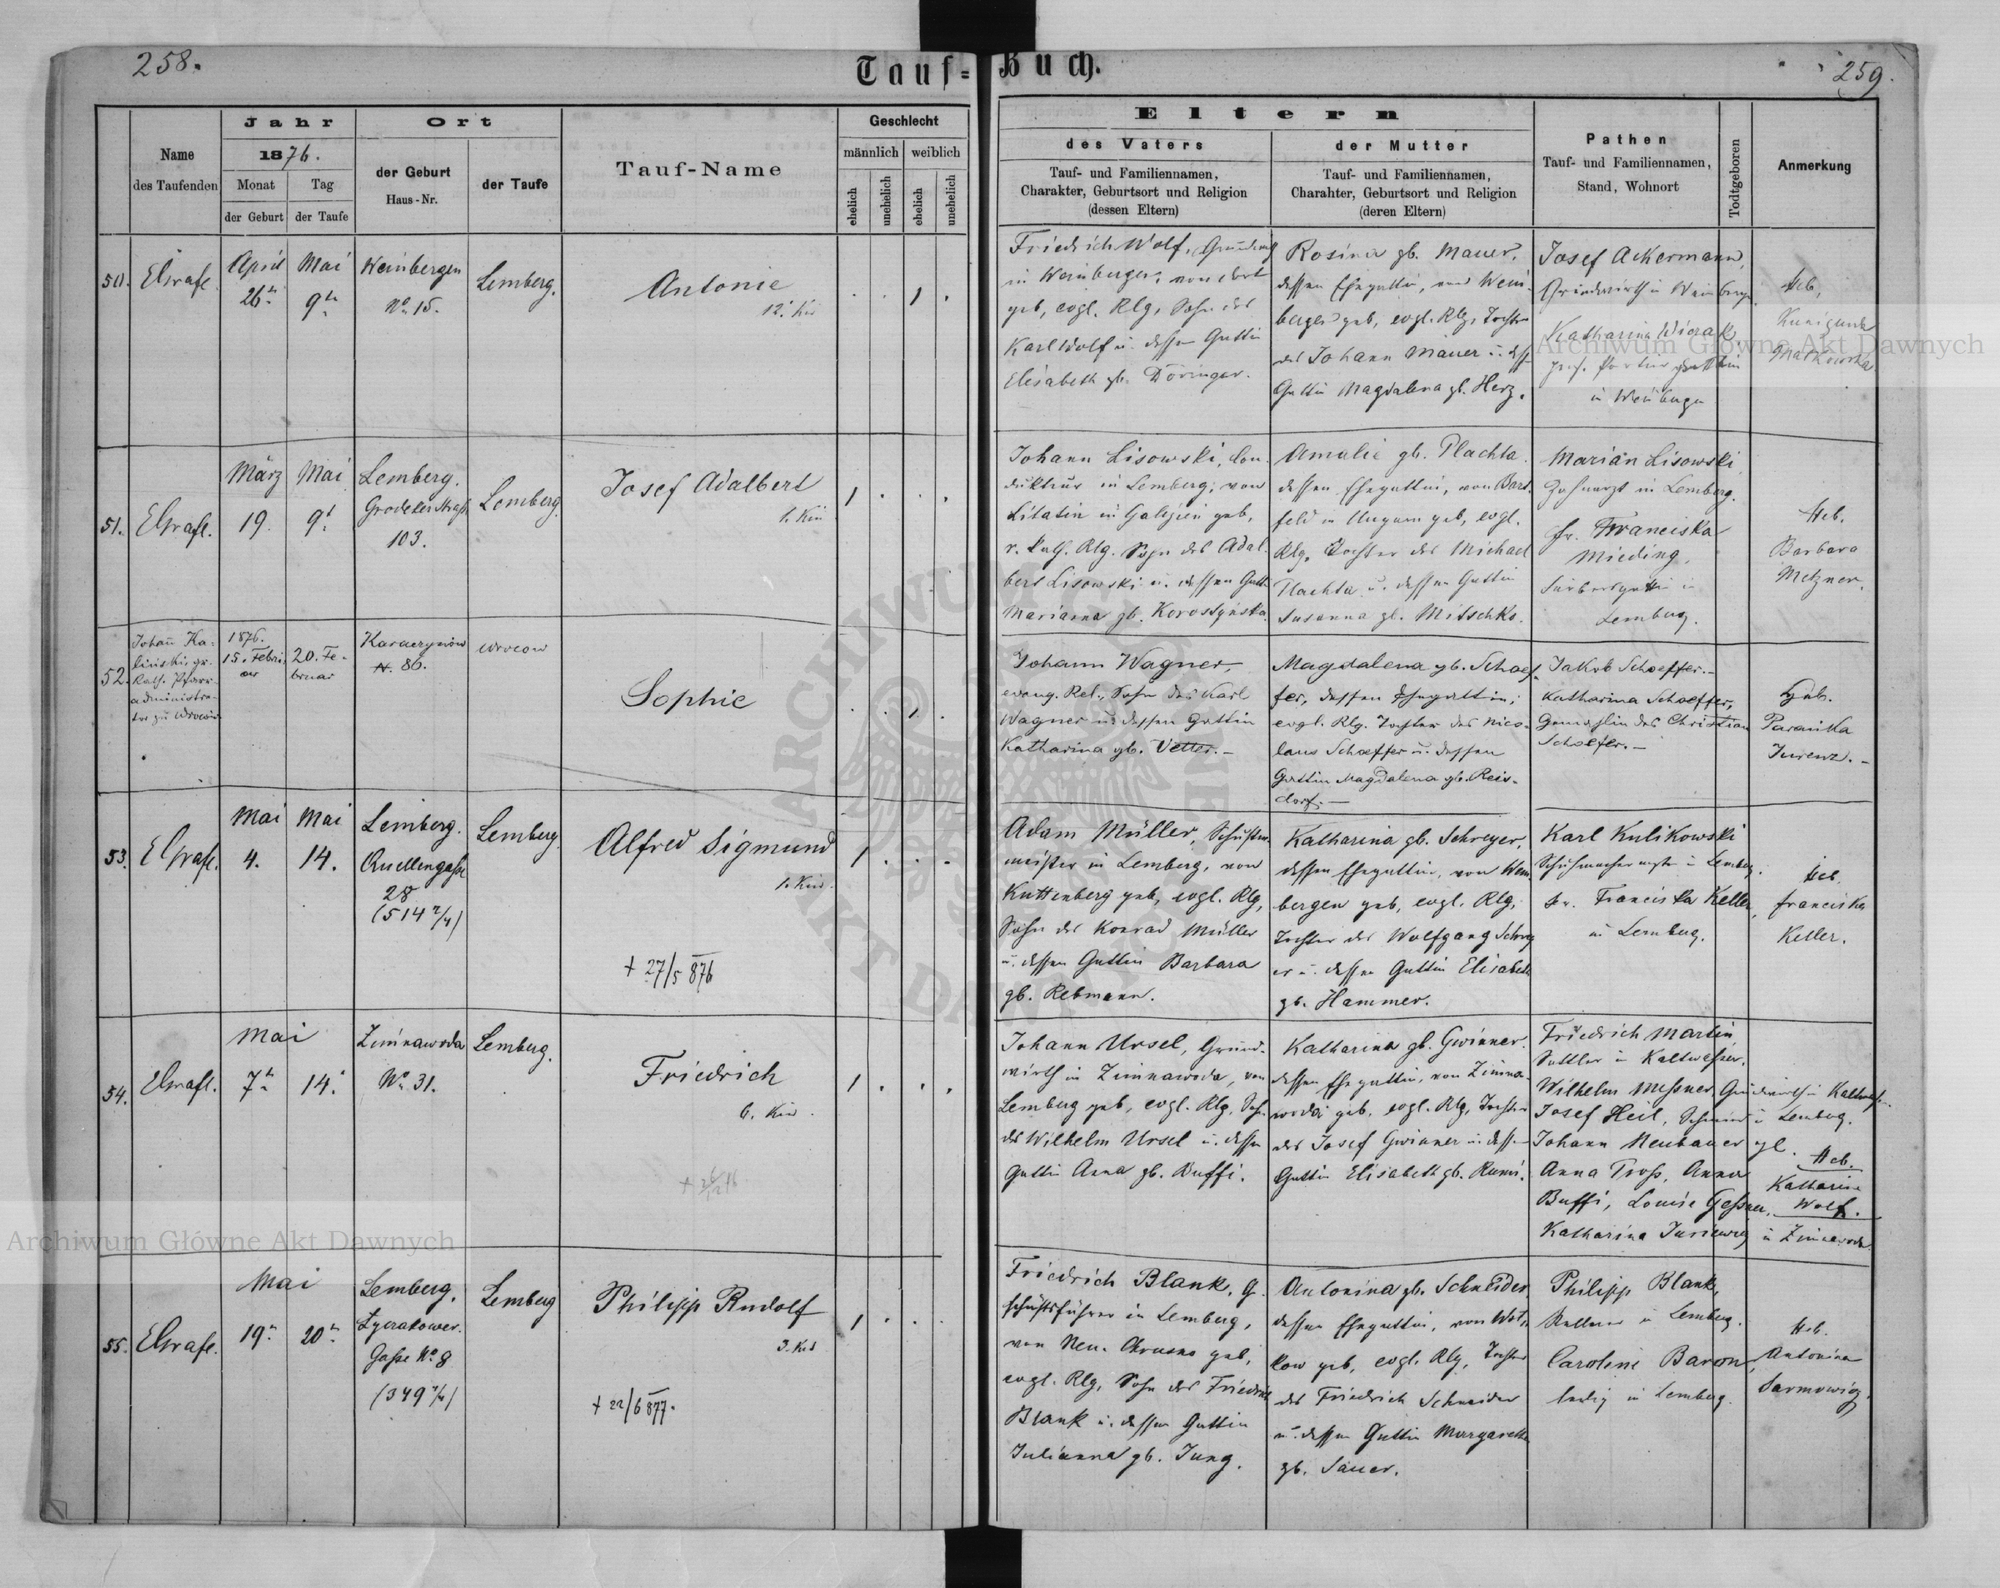 258.
Tauf=
Jahr
Ort
Geschlecht
Name
des Taufenden
1876.
der Geburt
Haus-Nr.
der Taufe
Tauf-Name
männlich
weiblich
Monat
Tag
der Geburt
der Taufe
ehelich
unehelich
ehelich
unehelich
50.
April
26
Mai
9
Weinbergen
No 15.
Lemberg.
Antonie
12. Kind
51.
März
19.
Mai
9
Lemberg.
103.
Lemberg.
Josef Adalbert
1. Kind
52.
Johann Ka-
linski gr.
Kath. Pfarr-
administra-
tor zu
1876.
15. Febru
ar
20. Fe-
bruar
N. 86.
Sophie
53.
Mai
4.
Mai
14.
Lemberg.
Quellengasse
28
(514 2/4)
Lemberg.
Alfred Sigmund
1. Kind.
+ 27/5 876
54.
Mai
7
14.
Zimnawoda
No 31.
Lemberg.
Friedrich
6. Kind.
55.
Mai
19
20
Lemberg.
Gasse No 8
Lemberg
Philipp Rudolf
3. Kind
+ 22/6 877.
Buch.
259.
Eltern
des Vaters
der Mutter
Tauf- und Familiennamen,
Charakter, Geburtsort und Religion
(dessen Eltern)
Tauf- und Familiennamen,
Charahter, Geburtsort und Religion
(deren Eltern)
Pathen
Tauf- und Familiennamen,
Stand, Wohnort
Todtgeboren
Anmerkung
Friedrich Wolf,
in Weinbergen, von dort
geb, evgl. Rlg, Sohn des
Karl Wolf u. dessen Gattin
Elisabeth gb. Döringer.
Rosina gb. Mauer,
dessen Ehegattin, von Wein-
bergen geb, evgl. Rlg, Tochter
des Johann Mauer u. dess
Gattin Magdalena gb. Herz.
Josef Ackermann,
Katharina
in
Heb.
Kunigunda
Johann Lisowski, Con-
dukteur in Lemberg, von
in Galizien geb,
r. kath. Rlg. Sohn des Adal-
bert Lisowski u. dessen Gatt
Marianna gb.
Amalie gb. Plachta
dessen Ehegattin, von Bart-
feld in Ungarn geb, evgl.
Rlg, Tochter des Michael
Plachta u. dessen Gattin
Susanna gb. Mitschko.
Marian Lisowski,
Zahnarzt in Lemberg.
fr. Franciska
Mieding,
in
Lemberg.
Heb.
Barbara
Metzner.
Johann Wagner
evang. Rel., Sohn des Karl
Wagner und dessen Gattin
Katharina gb. Vetter.-
Magdalena gb. Schaef-
fer, dessen Ehegattin;
evgl. Rlg. Tochter des Nico-
laus Schaeffer u. dessen
Gattin Magdalena gb. Reis-
dorf.-
Jakob Schaeffer.-
Katharina Schaeffer,
Gemahlin des Christian
Schaefer.-
Heb.
Paranka
Adam Müller, Schuster-
meister in Lemberg, von
Kuttenberg geb, evgl. Rlg,
Sohn des Konrad Müller
u. dessen Gattin Barbara
gb. Rebmann.
Katharina gb. Schreyer,
dessen Ehegattin, von Wein-
bergen geb, evgl. Rlg,
Tochter des Wolfgang Schrey
er u. dessen Gattin Elisabeth
gb. Hammer.
Karl Kulikowski
Schuhmacher in Lemberg.
Fr. Franciska Keller,
in Lemberg.
Heb.
Franciska
Keller.
Johann Ursel, Grund-
wirth in Zimnawoda, von
Lemberg geb, evgl. Rlg, Sohn
des Wilhelm Ursel u. dessen
Gattin Anna gb. Buffi.
Katharina gb. Gwinner.
dessen Ehegattin, von Zimna-
woda geb, evgl. Rlg, Tochter
des Josef Gwinner u. dessen
Gattin Elisabeth gb.
Friedrich Martin
Sattler in Kaltwasser.
Wilhelm Messner,
Josef Heil, Schmied in Lemberg.
Johann Neubauer
Anna Pross, Anna
Buffi, Louise
Katharina
Heb.
Katharina
Wolf.
in Zimnawoda
Friedrich Blank, Ge-
schäftsführer in Lemberg,
von geb,
evgl. Rlg, Sohn des Friedrich
Blank u. dessen Gattin
Julianna gb. Jung.
Antonina gb. Schneider,
dessen Ehegattin, von
kow geb, evgl. Rlg, Tochter
des Friedrich Schneider
u. dessen Gattin Margaretha
gb. Sauer.
Philipp Blank,
in Lemberg.
Caroline Baron,
ledig in Lemberg.
Heb.
Antonina
Archiwum Główne Akt Dawnych
Archiwum Główne Akt Dawnych